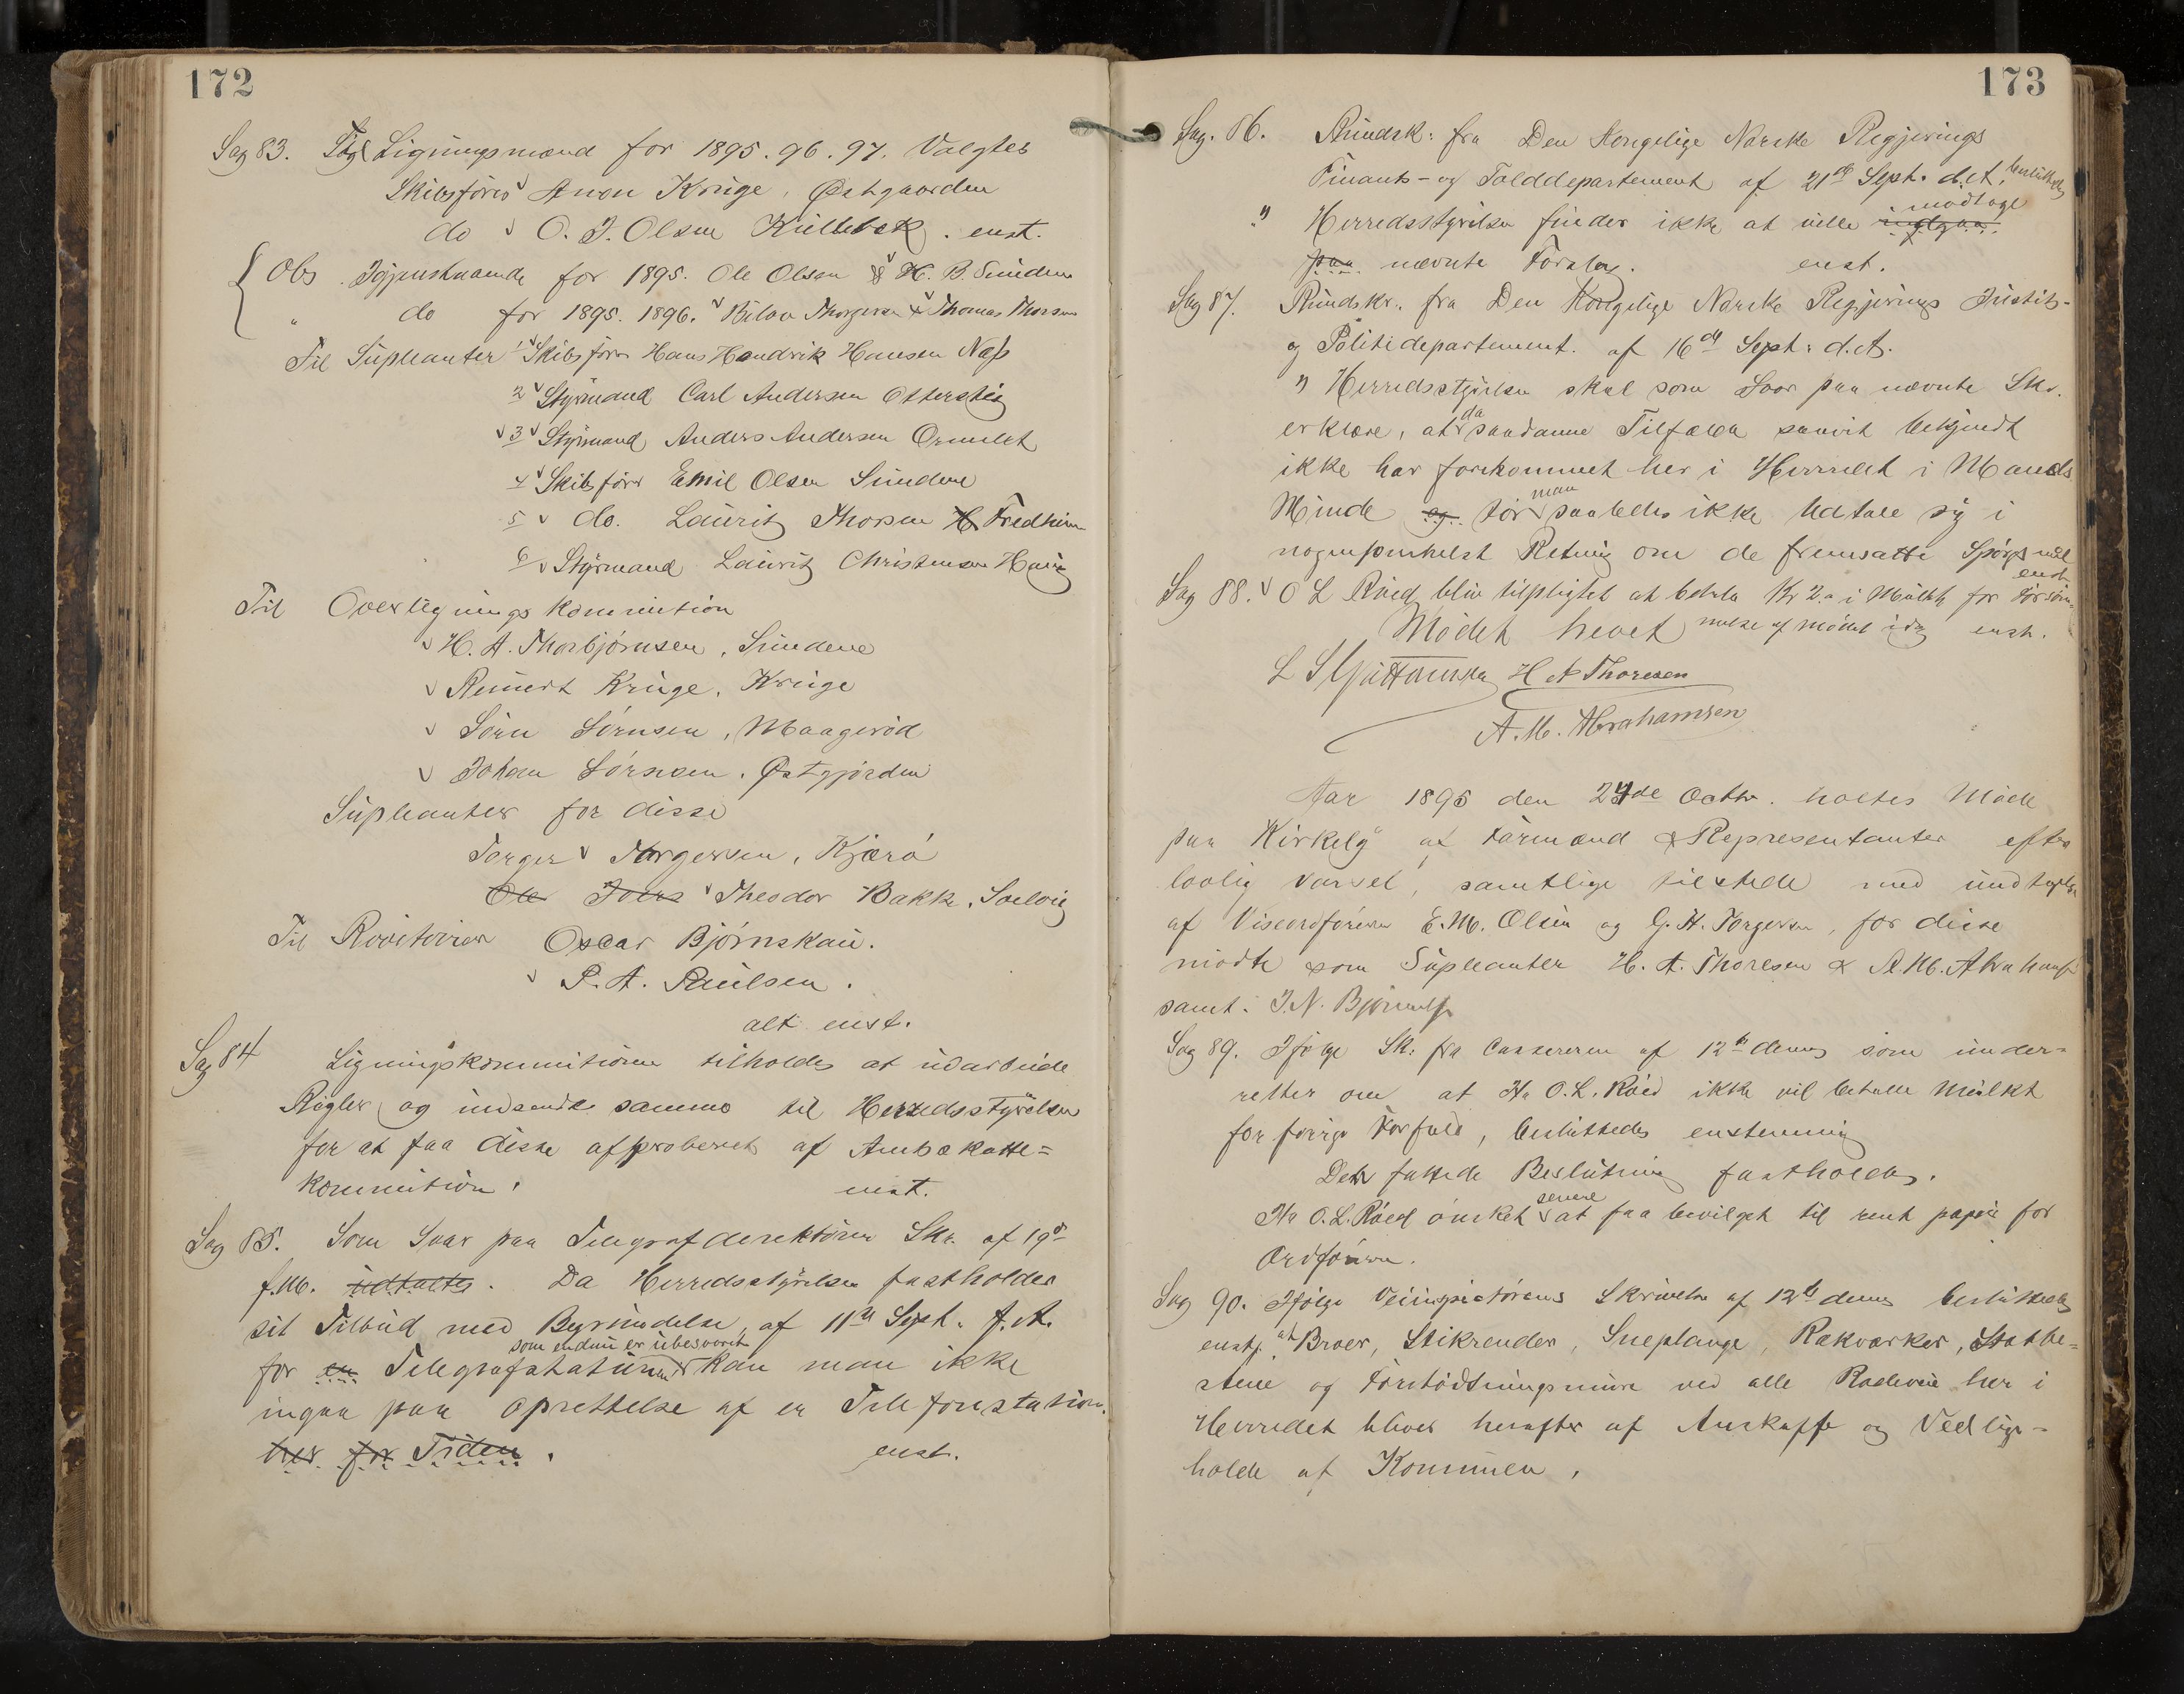 172
Sag 83. Ligningsmænd for 1895. 96. 97. Valgtes
Skibsförer Anon Kruge, Østgaarden
do O. J. Olsen Küllebek. enst.
Obs. Igjenstaaende for 1895. Ole Olsen & H. B. Sundene
" do for 1895. 1896. Thorgersen & Thomas Thorsen
Til Supleanter 1 Skibsförer Hans Hendrik Hansen Næs
2 Styrmand Carl Andersen Otterstig
3 Styrmand Anders Andersen Ormelet
4 Skibsförer Emil Olsen Sundene
5 do. Lauritz Thorsen Fredheim
6 Styrmand Lauritz Christensen Haug
Til Overligningskommition
H. A. Thorbjørnsen, Sundene
Reinert Kruge, Kruge
Sörn Sörnsen, Maageröd
Johan Sörnsen, Østgjorden
Supleanter for disse
Torger Torgersen, Kjærö
Ole Joers Theodor Bakke, Solvig
Til Rivitorier Oscar Bjørnskau.
P. A. Paulsen.
alt enst.
Sag 84 Ligningskommitionen tilholdes at udarbeide
Regler og indsende samme til Herredsstyrelsen
for at faa disse afproberet af Amtskatte=
kommition. enst.
Sag 85. Som Svar paa Telegrafderektören Skr. af 19de
f.M. udtaltes. Da Herredsstyrelsen fastholder
sit Tilbud med Begrundelse, af 11te Sept. f. A.
som endnu er ubesvaret
for en Telegrafstation kan man ikke
ingaa paa oprettelse af en Telefonstation
her for Tiden. enst.
173
Sag. 86. Rundsk: fra Den Kongelige Norske Regjerings
Finants- og Tolddepartement af 21de Sept. d.A. besluttedes
modtage
" Herredsstyrelsen finder ikke at ville indgaa
paa nævnte Forslag. enst.
Sag 87. Rundskr. fra Den Kongelige Norske Regjerings Justits-
og Politidepartement. af 16de Sept: d.A.
" Herredsstyrelsen skal som Svar paa nævnte Skr.
erklære, at da saadanne Tilfælde saavit bekjendt
ikke har forekommet her i Herredet i Mands
Minde og tör man saaledes ikke Udtale sig i
nogensomhelst Retning om de fremsatte Spörgsmål
enst.
Sag 88. O L Röed blir tilpligtet at betale Kr 2.- i Mülkt for Forsöm-
melse af mödet idag enst.
Mödet hevet
H A Thoresen
A. M. Abrahamsen
Aar 1895 den 24de Octbr. holtes Möde
paa Kirkelg af Formænd & Representanter efter
lovlig varsel, samtlige tilstede med undtagelse
af Viseordföreren E. M. Olsen og G. H. Torgersen, for disse
mödte som Supleanter H. A. Thoresen & A. M. Abrahamsen
samt. J. N. Bjørnnes
Sag 89. Ifölge Sk: fra Cassereren af 12te dennes som under=
retter om at Hr O. L. Röed ikke vil betale Mülkt
for forrige Forfald, besluttedes enstemmig
Den fattede Beslutning fastholdes.
Hr O. L. Röed önsket senere at faa bevilget til rent papir for
Ordföreren.
Sag 90. Ifölge Veiinspectörens Skrivelse af 12te dennes besluttedes
enst. at Broer, Stikrender, Sneplouge, Rækværker, Stabbe=
stene og Forstödtningsmure ved alle Rodeveie her i
Herredet bliver herefter af Anskaffe og Vedlige=
holde af Kommunen.